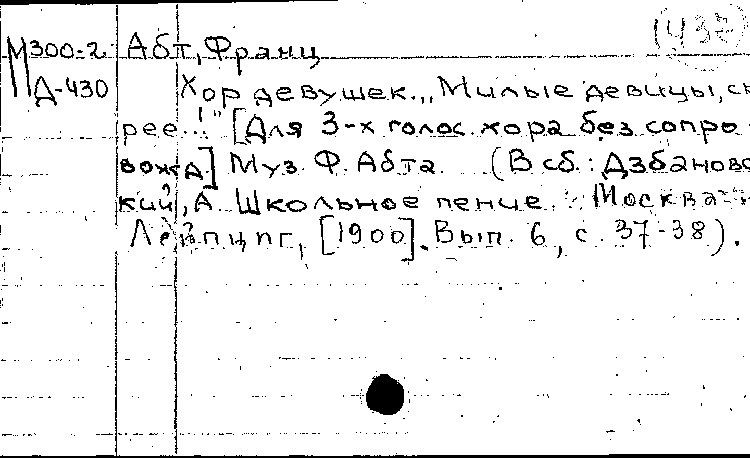 М300-2 Абт, Франц (437)
Д-430 Хор девушек. „Милые девицы, ск
рее..!" [Для 3-х голос. хора без сопро
вожд] Муз. Ф. Абта. (В сб.: Дзбановс
кий, А. Школьное пение. Москва-
Лейпциг, [1900]. Вып. 6, с. 37-38).